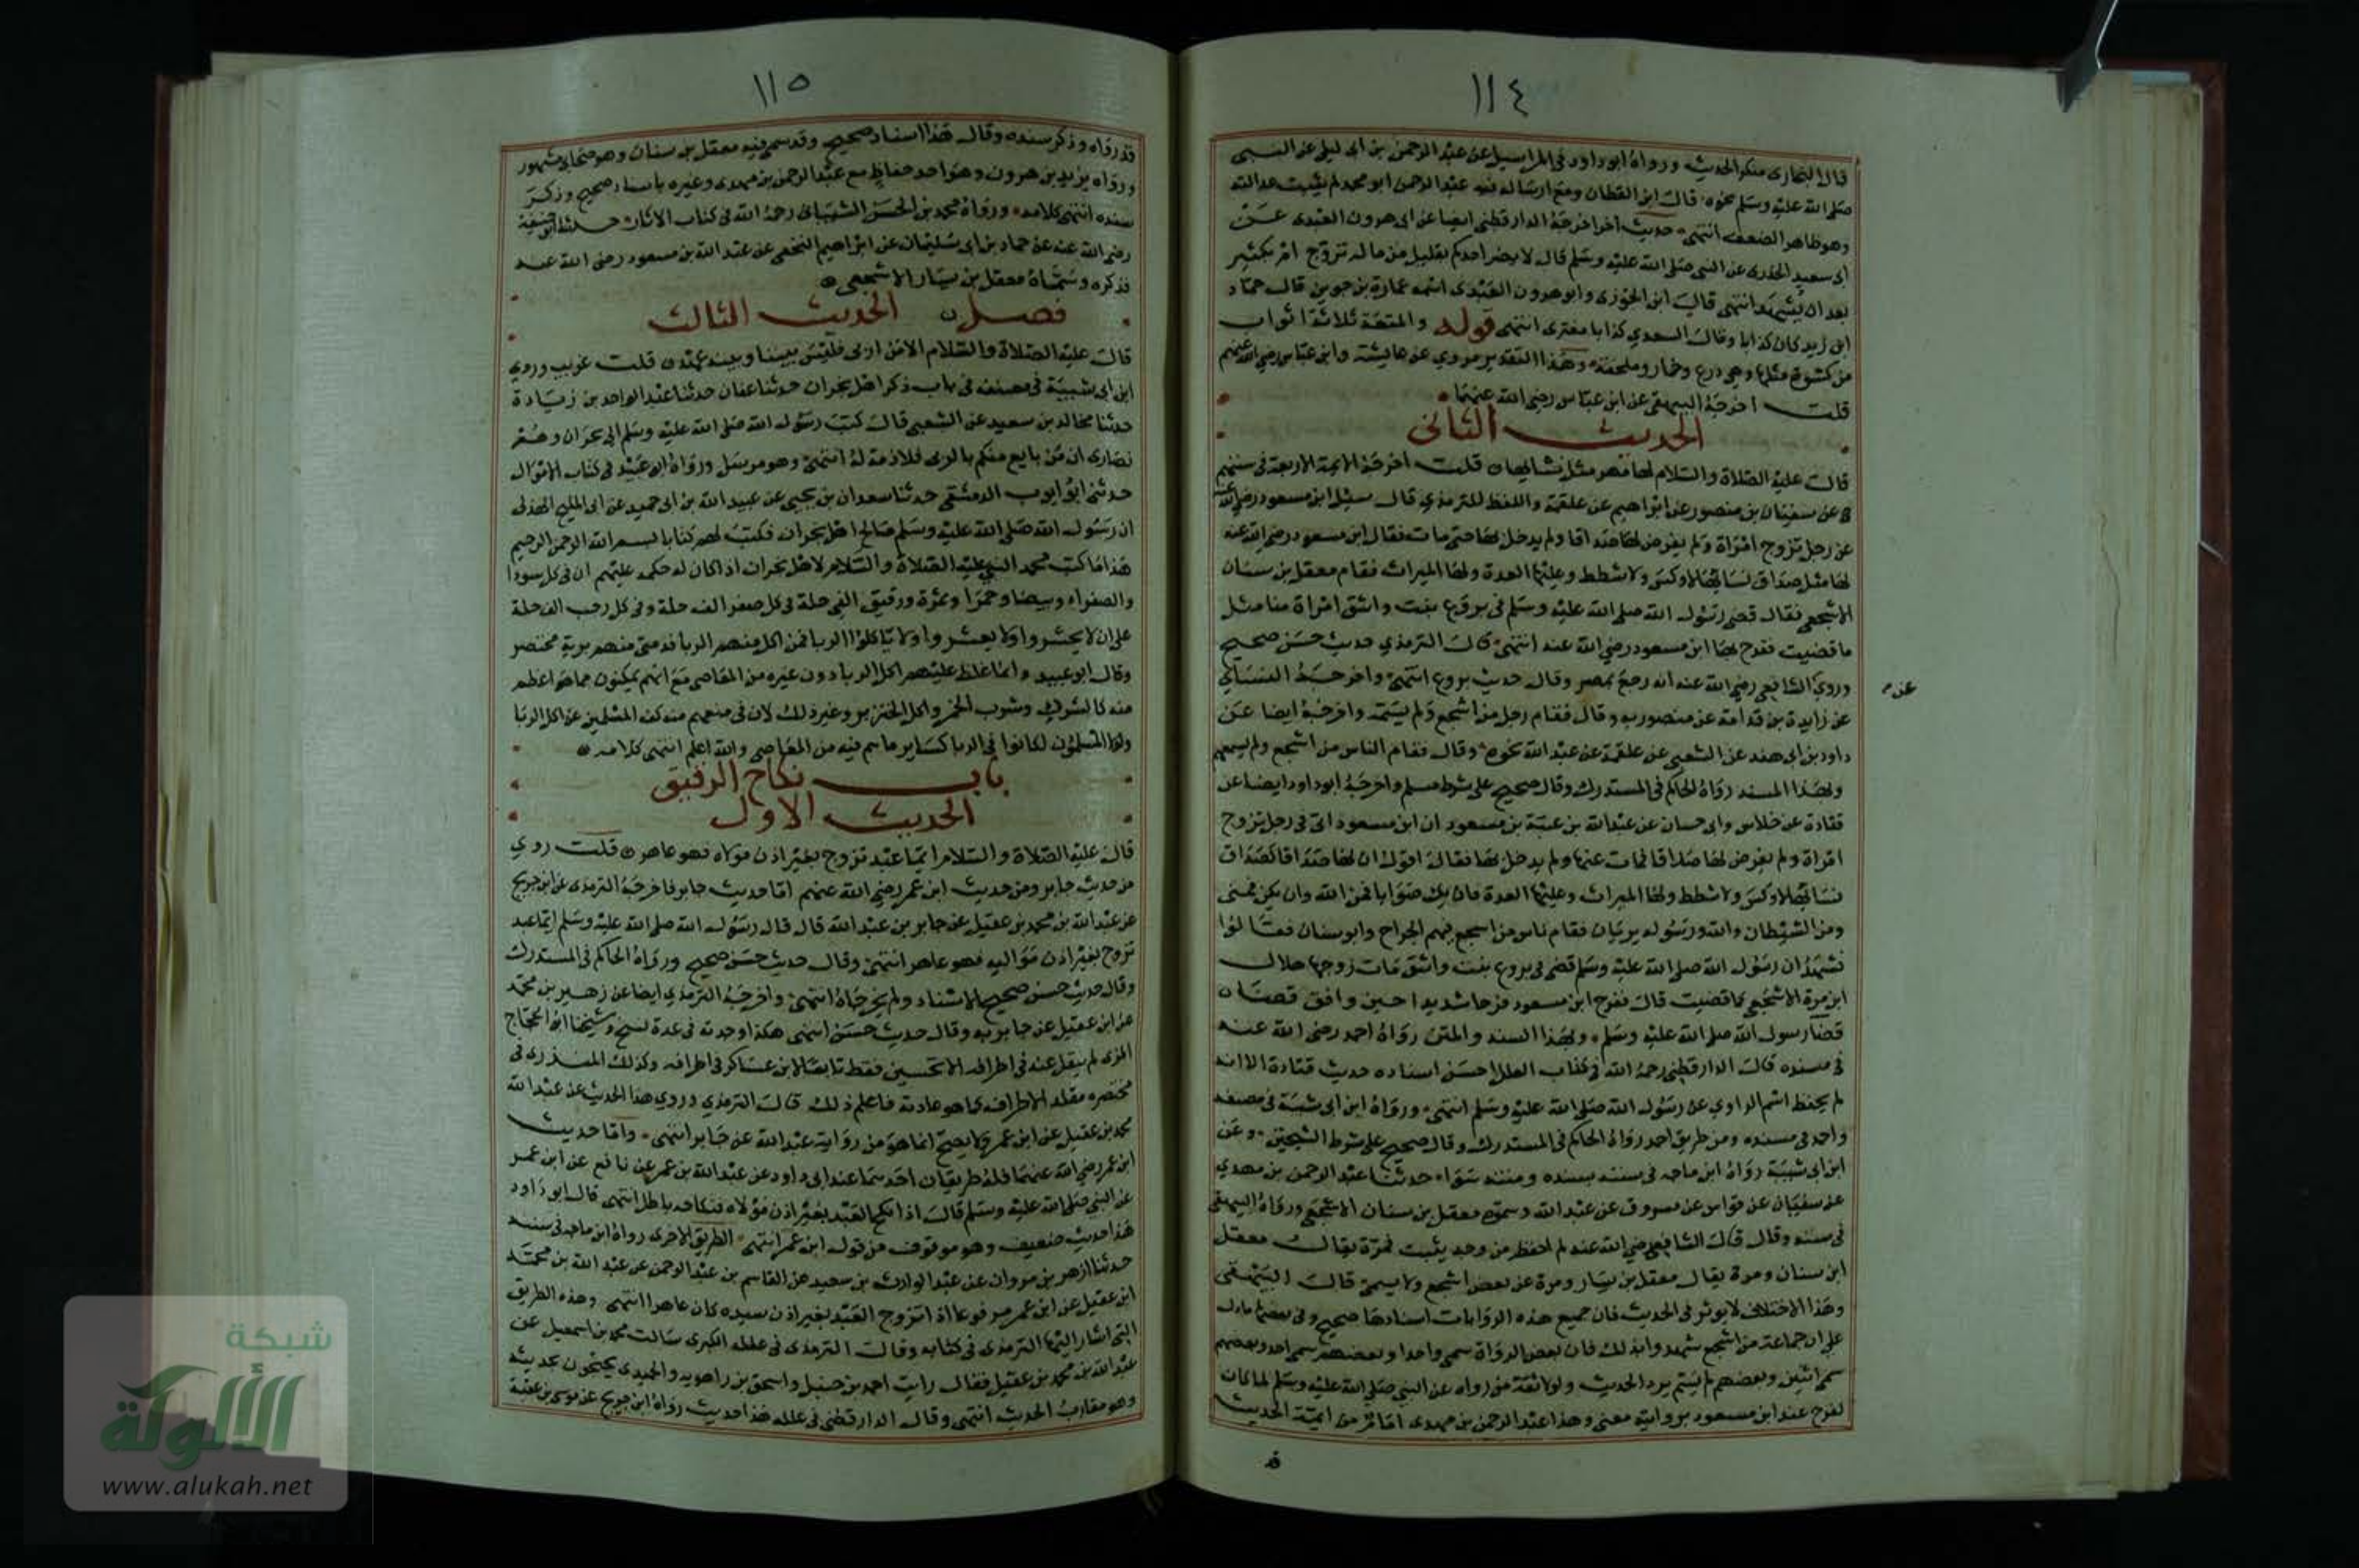 ١١٤
قال البخارى منكر الحديث ورواه ابو داود فى المراسيل عن عبد الرحمن بن ابى ليلى عن النبى
صلى الله عليه وسلم نحوه قال ابن القطان ومع ارساله فيه عبد الرحمن ابو محمد لم يثبت عدالته
وهو ظاهر الضعف انتهى حديث اخر اخرجه الدارقطنى ايضا عن ابى هرون العبدى عن
ابى سعيد الخدرى عن النبى صلى الله عليه وسلم قال لا يضر احدكم بقليل من ماله تزوج ام بكثير
بعد ان يشهد انتهى قال ابن الجوزى وابو هرون العبدى اسمه عمارة بن جوين قال حماد
ابن زيد كان كذابا وقال السعدي كذابا مفترى انتهى قوله والمتعة ثلاثة اثواب
من كسوة مثلها وهى درع وخمار وملحفة وهذا التقدير مروي عن عايشة وابن عباس رضى الله عنهم
قلت اخرجه البيهقى عن ابن عباس رضى الله عنهما
الحديث الثانى
قال عليه الصلاة والسلام لها مهر مثل نسائها قلت اخرجه الايمة الاربعة فى سننهم
عن سفيان بن منصور عن ابراهيم عن علقمة واللفظ للترمذي قال سيل ابن مسعود رضى الله عنه
عن رجل تزوج امراة ولم يفرض لها صداقا ولم يدخل بها حتى مات فقال ابن مسعود رضى الله عنه
لها مثل صداق نسائها لا وكس ولا شطط وعليها العدة ولها الميراث فقام معقل بن سنان
الاشجعى فقال قضى رسول الله صلى الله عليه وسلم فى بروع بنت واشق امراة منا مثل
ما قضيت ففرح بها ابن مسعود رضى الله عنه انتهى قال الترمذي حديث حسن صحيح
وروي الشافعى رضى الله عنه انه رجع بمصر وقال حديث بروع انتهى واخرجه النسائي
عن م
عن زايدة بن قدامة عن منصور به وقال فقام رجل من اشجع ولم يسمه واخرجه ايضا عن
داود بن ابى هند عن الشعبى عن علقمة عن عبد الله نحوه وقال فقام الناس من اشجع ولم يسمهم
وبهذا المسند رواه الحاكم فى المستدرك وقال صحيح على شرط مسلم واخرجه ابو داود ايضا عن
قتادة عن خلاس وابى حسان عن عبد الله بن عتبة بن مسعود ان ابن مسعود اتى فى رجل تزوج
امراة ولم يفرض لها صداقا فمات عنها ولم يدخل بها فقال اقول ان لها صداقا كصداق
نسائها لا وكس ولا شطط ولها الميراث وعليها العدة فان يك صوابا فمن الله وان يكن فمنى
ومن الشيطان والله ورسوله بريان فقام ناس من اشجع فيهم الجراح وابو سنان فقالوا
نشهد ان رسول الله صلى الله عليه وسلم قضى فى بروع بنت واشق مات زوجها هلال
ابن مرة الاشجعى كما قضيت قال ففرح ابن مسعود فرحا شديدا حين وافق قضاه
قضا رسول الله صلى الله عليه وسلم وبهذا السند والمتن رواه احمد رضى الله عنه
فى مسنده قال الدارقطنى رحمه الله فى كتاب العلل احسن اسناده حديث قتادة الا انه
لم يحفظ اسم الراوي عن رسول الله صلى الله عليه وسلم انتهى ورواه ابن ابى شيبة فى مصنفه
واحمد فى مسنده ومن طريق احمد رواه الحاكم فى المستدرك وقال صحيح على شرط الشيخين وعن
ابن ابى شيبة رواه ابن ماجه فى سننه بسنده ومتنه سواء حدثنا عبد الرحمن بن مهدي
عن سفيان عن فراس عن مسروق عن عبد الله وسموه معقل بن سنان الاشجعى ورواه البيهقى
فى سننه وقال قال الشافعى رضى الله عنه لم احفظ من وجه يثبت فمرة يقال معقل
ابن سنان ومرة يقال معقل بن يسار ومرة عن بعض اشجع ولا يسمى قال البيهقى
وهذا الاختلاف لا يوثر فى الحديث فان جميع هذه الروايات اسنادها صحيح وفى بعضها ما دل
على ان جماعة من اشجع شهدوا بذلك فان بعض الرواة سمى واحدا وبعضهم سمى احد وبعضهم
سمى اثنين وبعضهم لم يسم يرد الحديث ولولا ثقة من رواه عن النبى صلى الله عليه وسلم لما كان
لفرح عبد ابن مسعود بروايته معنى وهذا عبد الرحمن بن مهدى امام من ايمة الحديث
قد
١١٥
قد رواه وذكر سنده وقال هذا اسناد صحيح وقد سمى فيه معقل بن سنان وهو صحابى مشهور
ورواه يزيد بن هرون وهو احد حفاظ مع عبد الرحمن بن مهدى وغيره باسناد صحيح وذكر
سنده انتهى كلامه ورواه محمد بن الحسن الشيبانى رحمه الله فى كتاب الاثار حدثنا ابو حنيفة
رضى الله عنه عن حماد بن ابى سليمان عن ابراهيم النخعى عن عبد الله بن مسعود رضى الله عنه
فذكره وسماه معقل بن يسار الاشجعى
فصل الحديث الثالث
قال عليه الصلاة والسلام الا من اربى فليس بيننا وبينه عهد قلت غريب وروي
ابن ابى شيبة فى مصنفه فى باب ذكر اهل نجران حدثنا عفان حدثنا عبد الواحد بن زيادة
حدثنا مجالد بن سعيد عن الشعبى قال كتب رسول الله صلى الله عليه وسلم الى نجران وهم
نصارى ان من بايع منكم بالربى فلا ذمة له انتهى وهو مرسل ورواه ابو عبيد فى كتاب الاموال
حدثنى ابو ايوب الدمشقى حدثنا سعدان بن يحيى عن عبيد الله بن ابى حميد عن ابى المليح الهذلى
ان رسول الله صلى الله عليه وسلم صالح اهل نجران فكتب لهم كتابا بسم الله الرحمن الرحيم
هذا ما كتب محمد النبى عليه الصلاة والسلام لاهل نجران اذا كان له حكمه عليهم ان فى كل سودا
والصفراء وبيضا وحمرا وثمرة ورقيق الفى حلة فى كل صفر الف حلة وفى كل رجب الف حلة
على ان لا يحشروا ولا يعشروا ولا ياكلوا الربا فمن اكل منهم الربا فذمتى منهم برية مختصر
وقال ابو عبيد وانما غلظ عليهم اكل الربا دون غيره من المعاصى مع انهم يمكنون مما هو اعظم
منه كالشرك وشرب الخمر واكل الخنزير وغير ذلك لان فى منعهم منه كف المسلمين عن اكل الربا
ولولا المسلمون لكانوا فى الربا كساير ما هم فيه من المعاصى والله اعلم انتهى كلامه
باب نكاح الرقيق
الحديث الاول
قال عليه الصلاة والسلام ايما عبد تزوج بغير اذن مولاه فهو عاهر قلت روي
من حديث جابر ومن حديث ابن عمر رضى الله عنهم اما حديث جابر فاخرجه الترمذى عن ابن جريج
عن عبد الله بن محمد بن عقيل عن جابر بن عبد الله قال قال رسول الله صلى الله عليه وسلم ايما عبد
تزوج بغير اذن مواليه فهو عاهر انتهى وقال حديث حسن صحيح ورواه الحاكم فى المستدرك
وقال حديث حسن صحيح الاسناد ولم يخرجاه انتهى واخرجه الترمذي ايضا عن زهير بن محمد
عن ابن عقيل عن جابر به وقال حديث حسن انتهى هكذا وجدته فى عدة نسخ وشيخنا ابو الحجاج
المزى لم ينقل عنه فى اطرافه الا تحسين فقط تابعا لابن عساكر فى اطرافه وكذلك المنذرى فى
مختصره مقلد الاطراف كما هو عادته فاعلم ذلك قال الترمذي وروي هذا الحديث عن عبد الله
محمد بن عقيل عن ابن عمر ولا يصح انما هو من رواية عبد الله عن جابر انتهى واما حديث
ابن عمر رضى الله عنهما فله طريقان احدهما عند ابى داود عن عبد الله بن عمر عن نافع عن ابن عمر
عن النبى صلى الله عليه وسلم قال اذا نكح العبد بغير اذن مولاه فنكاحه باطل انتهى قال ابو داود
هذا حديث ضعيف وهو موقوف من قول ابن عمر انتهى الطريق الاخرى رواه ابن ماجه فى سننه
حدثنا ازهر بن مروان عن عبد الوارث بن سعيد عن القاسم بن عبد الرحمن عن عبد الله بن محمد
ابن عقيل عن ابن عمر مرفوعا اذا تزوج العبد بغير اذن سيده كان عاهرا انتهى وهذه الطريق
التى اشار اليها الترمذى فى كتابه وقال الترمذى فى علله الكبرى سالت محمد بن اسمعيل عن
عبد الله بن محمد بن عقيل فقال رايت احمد بن حنبل واسحق بن راهويه والحميدى يحتجون بحديثه
وهو مقارب الحديث انتهى وقال الدارقطنى فى علله هذا حديث رواه ابن جريج عن موسى بن عقبة
شبكة
الألوكة
www.alukah.net